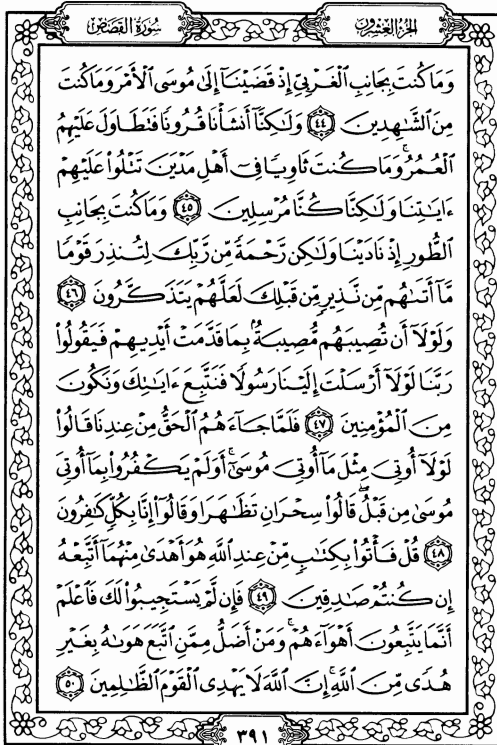 الجزء العشرون
سورة القصص
وَمَا كُنتَ بِجَانِبِ ٱلْغَرْبِىِّ إِذْ قَضَيْنَآ إِلَىٰ مُوسَى ٱلْأَمْرَ وَمَا كُنتَ
مِنَ ٱلشَّٰهِدِينَ ٤٤ وَلَٰكِنَّآ أَنشَأْنَا قُرُونًا فَتَطَاوَلَ عَلَيْهِمُ
ٱلْعُمُرُ ۚ وَمَا كُنتَ ثَاوِيًا فِىٓ أَهْلِ مَدْيَنَ تَتْلُوا۟ عَلَيْهِمْ
ءَايَٰتِنَا وَلَٰكِنَّا كُنَّا مُرْسِلِينَ ٤٥ وَمَا كُنتَ بِجَانِبِ
ٱلطُّورِ إِذْ نَادَيْنَا وَلَٰكِن رَّحْمَةً مِّن رَّبِّكَ لِتُنذِرَ قَوْمًا
مَّآ أَتَىٰهُم مِّن نَّذِيرٍ مِّن قَبْلِكَ لَعَلَّهُمْ يَتَذَكَّرُونَ ٤٦
وَلَوْلَآ أَن تُصِيبَهُم مُّصِيبَةٌۢ بِمَا قَدَّمَتْ أَيْدِيهِمْ فَيَقُولُوا۟
رَبَّنَا لَوْلَآ أَرْسَلْتَ إِلَيْنَا رَسُولًا فَنَتَّبِعَ ءَايَٰتِكَ وَنَكُونَ
مِنَ ٱلْمُؤْمِنِينَ ٤٧ فَلَمَّا جَآءَهُمُ ٱلْحَقُّ مِنْ عِندِنَا قَالُوا۟
لَوْلَآ أُوتِىَ مِثْلَ مَآ أُوتِىَ مُوسَىٰٓ ۚ أَوَلَمْ يَكْفُرُوا۟ بِمَآ أُوتِىَ
مُوسَىٰ مِن قَبْلُ ۖ قَالُوا۟ سِحْرَانِ تَظَٰهَرَا وَقَالُوٓا۟ إِنَّا بِكُلٍّ كَٰفِرُونَ
٤٨ قُلْ فَأْتُوا۟ بِكِتَٰبٍ مِّنْ عِندِ ٱللَّهِ هُوَ أَهْدَىٰ مِنْهُمَآ أَتَّبِعْهُ
إِن كُنتُمْ صَٰدِقِينَ ٤٩ فَإِن لَّمْ يَسْتَجِيبُوا۟ لَكَ فَٱعْلَمْ
أَنَّمَا يَتَّبِعُونَ أَهْوَآءَهُمْ ۚ وَمَنْ أَضَلُّ مِمَّنِ ٱتَّبَعَ هَوَىٰهُ بِغَيْرِ
هُدًى مِّنَ ٱللَّهِ ۚ إِنَّ ٱللَّهَ لَا يَهْدِى ٱلْقَوْمَ ٱلظَّٰلِمِينَ ٥٠
٣٩١